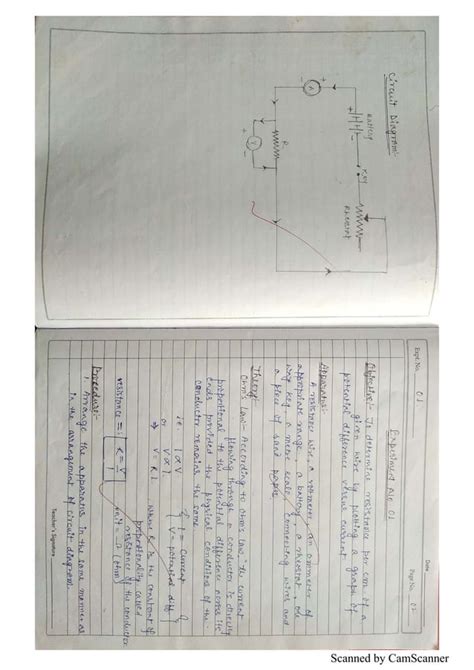 Circuit Diagram:-
Battery
Key
Rheostat
A
R
V
Date
Expt. No. 01
Page No. 02
Experiment No. 01
Objective:- To determine resistance per cm of a
given wire by plotting a graph of
potential difference versus current
Apparatus:-
A resistance wire a voltmeter, an ammeter of
appropriate range, a battery a rheostat, one
way key a meter scale, connecting wires and
a piece of sand paper
Theory:-
Ohm's Law - According to ohm's law "The current
flowing through a conductor is directly
proportional to the potential difference across its
ends provided the physical conditions of the
conductor remains the same
i.e. I ∝ V
or V ∝ I
V = R I
{ I = Current
V = potential diff }
where R is the constant of
proportionality called
resistance of the conductor
resistance = R = V/I
unit = Ω (ohm)
Procedure:-
1. Arrange the apparatus in the same manner as
in the arrangement of circuit diagram.
Teacher's Signature
Scanned by CamScanner